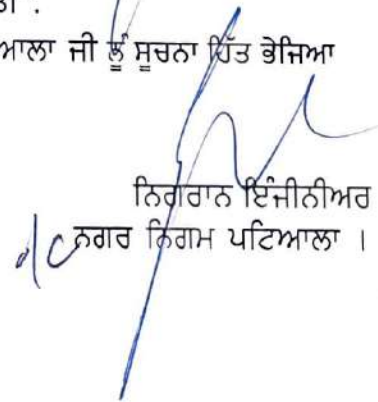 ਆਲਾ ਜੀ ਨੂੰ ਸੂਚਨਾ ਹਿੱਤ ਭੇਜਿਆ
ਨਿਗਰਾਨ ਇੰਜੀਨੀਅਰ
ਨਗਰ ਨਿਗਮ ਪਟਿਆਲਾ ।